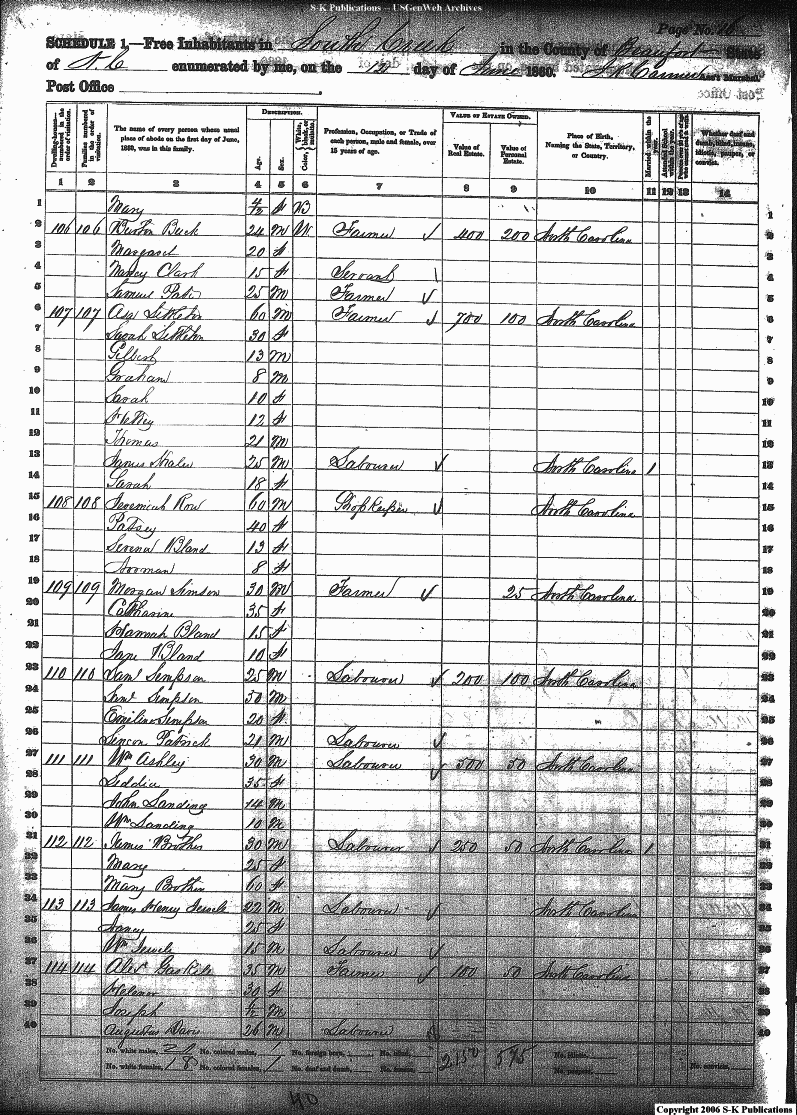 S-K Publications -- USGenWeb Archives
Page No. 26
SCHEDULE 1.—Free Inhabitants in South Creek in the County of Beaufort State
of N.C enumerated by me, on the 12 day of June 1860. Ass't Marshal.
Post Office
DESCRIPTION. VALUE OF ESTATE OWNED.
Dwelling-houses—numbered in the order of visitation. Families numbered in the order of visitation. The name of every person whose usual place of abode on the first day of June, 1860, was in this family. Age. Sex. Color, White, black, or mulatto. Profession, Occupation, or Trade of each person, male and female, over 15 years of age. Value of Real Estate. Value of Personal Estate. Place of Birth, Naming the State, Territory, or Country. Married within the year. Attended School within the year. Whether deaf and dumb, blind, insane, idiotic, pauper, or convict.
1 2 3 4 5 6 7 8 9 10 11 12 13 14
1 Mary f B 1
2 106 106 Burton Buck 24 M W Farmer 400 200 North Carolina 2
3 Margaret 20 f 3
4 Nancy Clark 15 f Servant 4
5 Samuel 25 M Farmer 5
6 107 107 Asa Littleton 60 M Farmer 700 100 North Carolina 6
7 Sarah Littleton 30 f 7
8 Gilbert 13 M 8
9 Graham 8 M 9
10 Sarah 10 f 10
11 12 f 11
12 Thomas 21 M 12
13 James 25 M Labourer North Carolina 1 13
14 Sarah 18 f 14
15 108 108 Jeremiah Row 60 M Shop keeper North Carolina 15
16 Patsey 40 f 16
17 Bland 13 f 17
18 8 f 18
19 109 109 Morgan Simson 30 M Farmer 25 North Carolina 19
20 Catharine 35 f 20
21 Hannah Bland 15 f 21
22 Jane Bland 10 f 22
23 110 110 Saml Simpson 25 M Labourer 200 100 North Carolina 23
24 Saml Simpson 50 M 24
25 Emiline Simpson 20 f 25
26 Patrick 21 M Labourer 26
27 111 111 Wm Ashley 30 M Labourer 500 50 North Carolina 27
28 Liddia 35 f 28
29 John Landing 14 M 29
30 Wm Landing 10 M 30
31 112 112 James Brothers 30 M Labourer 250 50 North Carolina 1 31
32 Mary 25 f 32
33 Mary Brothers 60 f 33
34 113 113 James Henry Jewels 22 M Labourer North Carolina 34
35 Nancy 25 f 35
36 Wm Jewels 15 M Labourer 36
37 114 114 Alex Gaskile 35 M Farmer 100 50 North Carolina 37
38 30 f 38
39 Joseph M 39
40 Augustus Davis 26 M Labourer 40
No. white males, No. colored males, No. foreign born, No. blind, 2150 575 No. idiotic,
No. white females, 18 No. colored females, 1 No. deaf and dumb, No. insane, No. paupers, No. convicts,
40
Copyright 2006 S-K Publications